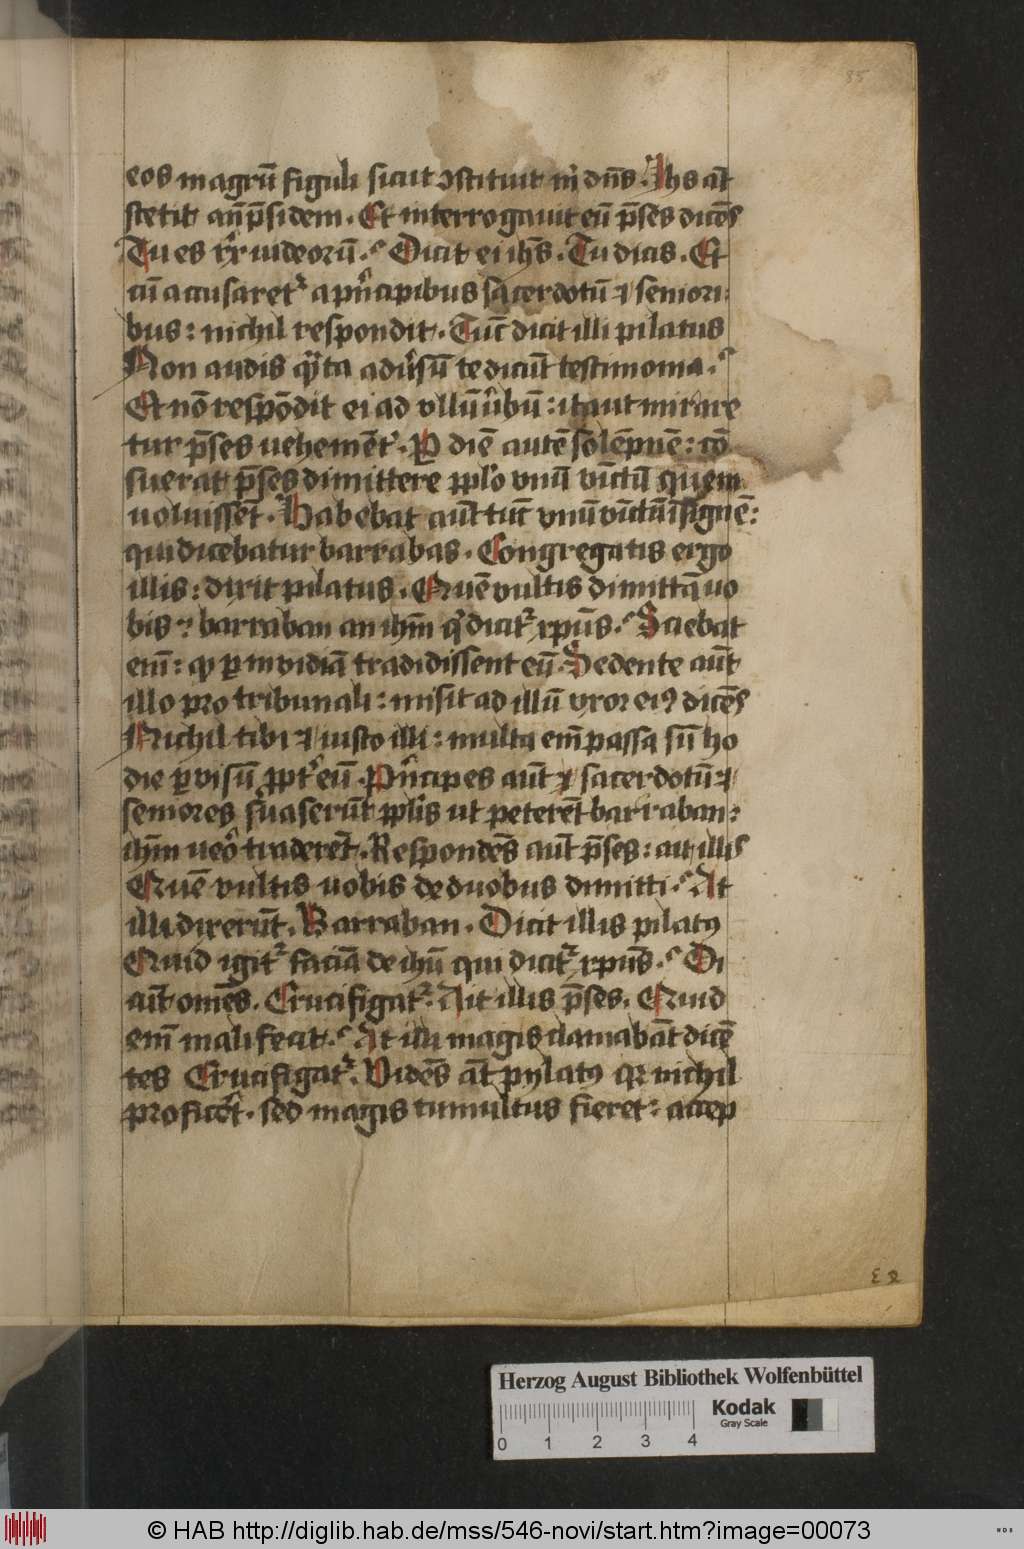 35
eos in agrū figuli sicut ɔstituit m̄ dn̄s. Ihs aūt
stetit an̄ p̄sidem. Et interrogauit eū p̄ses dicēs
Tu es rex iudeorū. Dicit ei ihs̄. Tu dicis. Et
cū accusaretᷣ a pͥncipibus sacerdotū ⁊ seniori
bus: nichil respondit. Tūc dicit illi pilatus
Non audis qͣnta adūsū te dicūt testimonia.
Et nō respōdit ei ad vllū ūbū: ita ut mirare
tur p̄ses uehemēt. P diē autē solēpnē: cō
sueuerat p̄ses dimittere pplō vnū vīctū quem
uoluissēt. Habebat aūt tūc vnū vīctū īsignē:
qui dicebatur barrabas. Congregatis ergo
illis: dixit pilatus. Quē vultis dimittā uo
bis: barraban an ihm̄ qͥ dicitᷣ xpūs. Sciebat
em̄: qꝫ p inuidiā tradidissent eū. Sedente aūt
illo pro tribunali: misit ad illū vxor eiꝰ dicēs
Nichil tibi ⁊ iusto illi: multa em̄ passa sū ho
die p visū ppt eū. Pͥncipes aūt sacerdotū ⁊
seniores suaserūt pplis ut peterēt barraban:
ihm̄ ueo traderēt. Respondēs aūt p̄ses: ait illis
Quē vultis uobis de duobus dimitti. At
illi dixerūt. Barraban. Dicit illis pilatꝰ
Quid igitᷣ faciā de ihū qui dicitᷣ xpūs. Di
aūt om̄s. Crucifigatᷣ. Ait illis p̄ses. Quid
em̄ mali fecit. At illi magis clamabāt dicē
tes Crucifigatᷣ. Vidēs aūt pylatꝰ qꝛ nichil
proficēt. sed magis tumultus fieret: accep
Herzog August Bibliothek Wolfenbüttel
Kodak
Gray Scale
0 1 2 3 4
© HAB http://diglib.hab.de/mss/546-novi/start.htm?image=00073